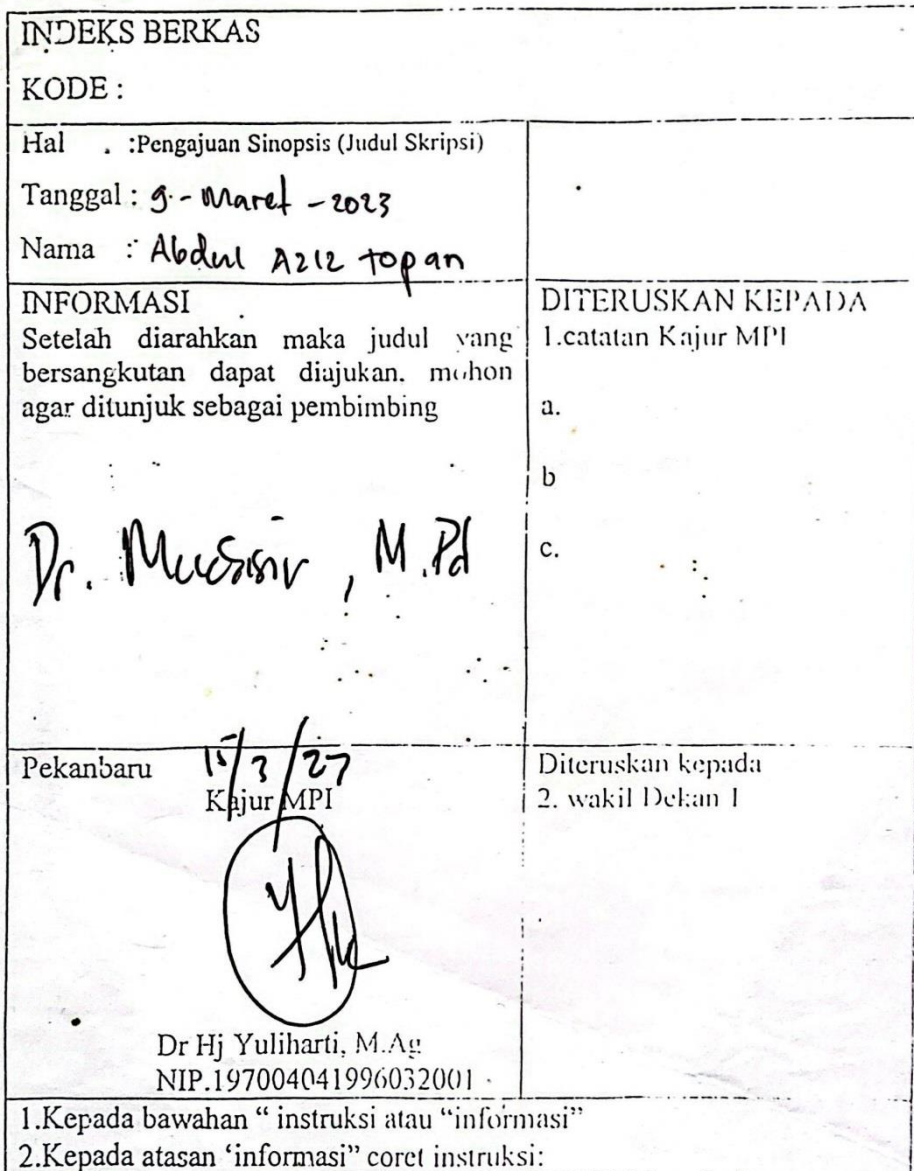 INDEKS BERKAS
KODE :
Hal : :Pengajuan Sinopsis (Judul Skripsi)
Tanggal : 9 - Maret - 2023
Nama : Abdul Aziz topan
INFORMASI
Setelah diarahkan maka judul yang
bersangkutan dapat diajukan. mohon
agar ditunjuk sebagai pembimbing
Dr. , M.Pd
DITERUSKAN KEPADA
1.catatan Kajur MPI
a.
b
c.
Pekanbaru 15/3/27
Kajur MPI
Dr Hj Yuliharti, M.Ag
NIP.197004041996032001
Diteruskan kepada
2. wakil Dekan 1
1.Kepada bawahan “ instruksi atau “informasi”
2.Kepada atasan ‘informasi” coret instruksi: